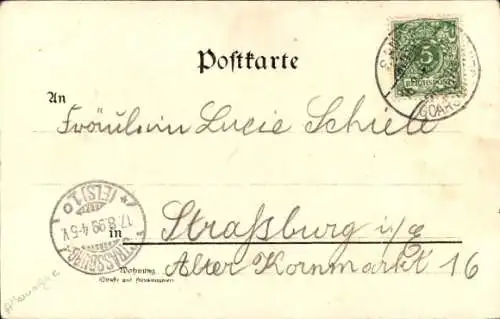 Postkarte
5
REICHSPOST
GOARS
An
Fräulein Lucie Schiele
STRASSBURG
(ELS) 1
17.8.99.4-5 N.
in Straßburg i/E
Wohnung
(Straße und Hausnummer)
Alter Kornmarkt 16